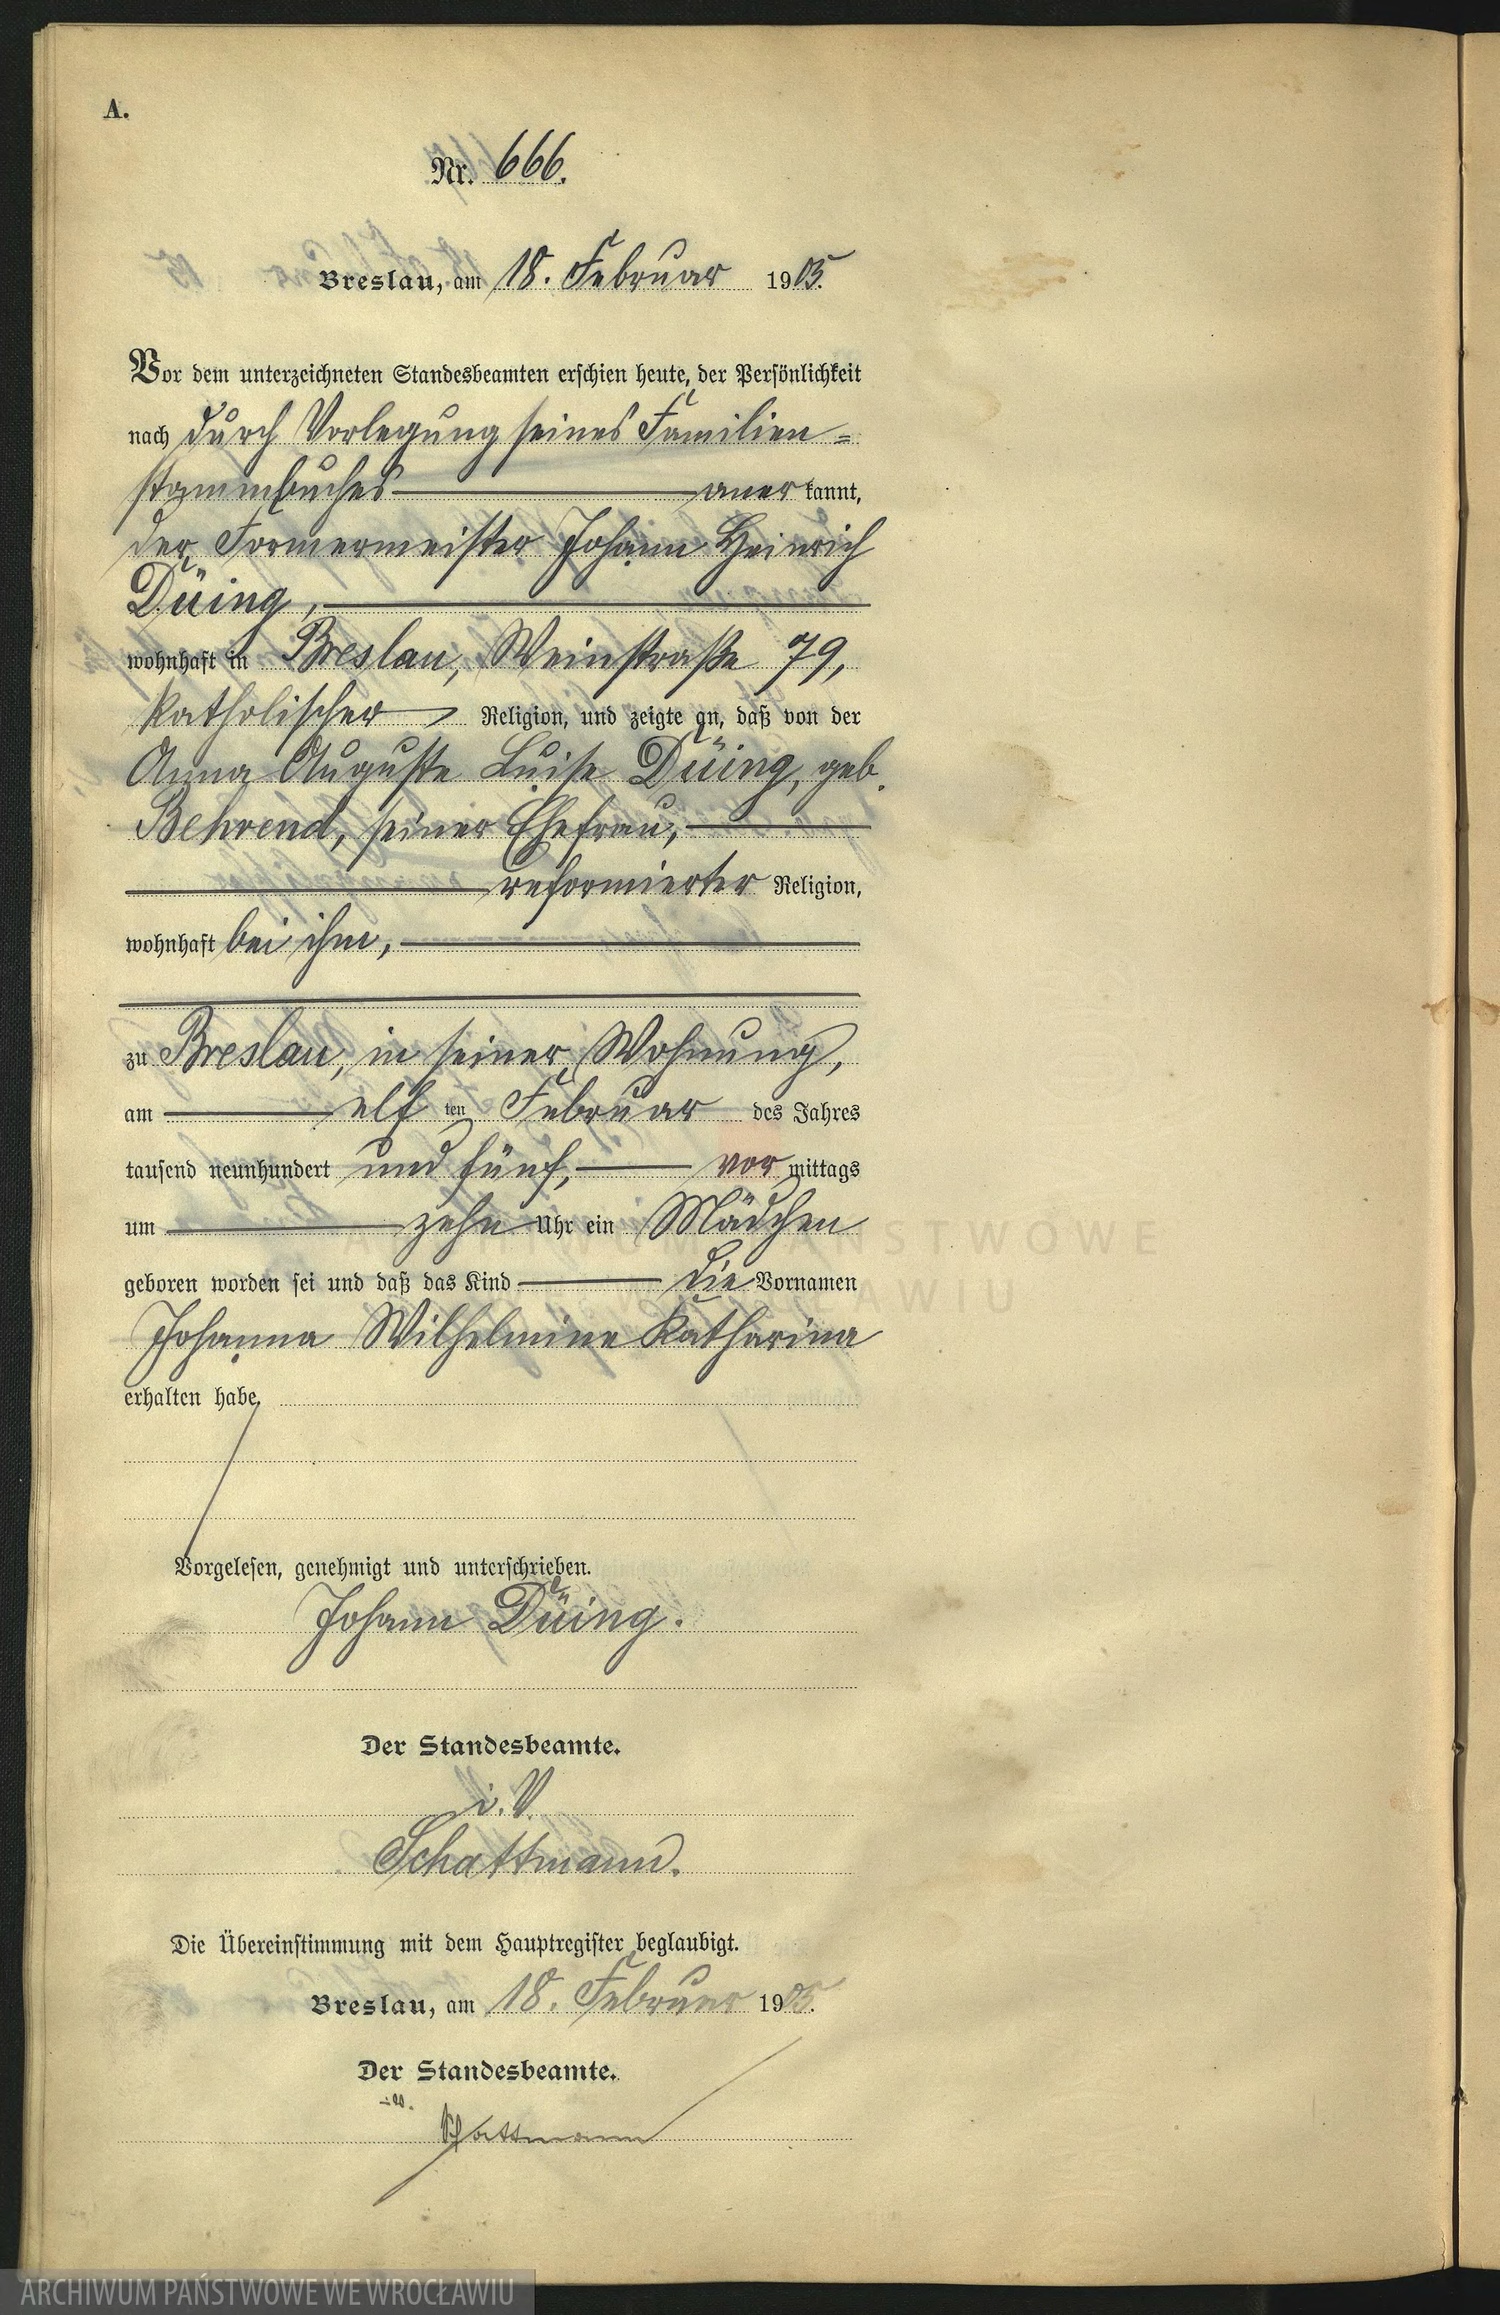 A.
Nr. 666.
Breslau, am 18. Februar 1905.
Vor dem unterzeichneten Standesbeamten erschien heute, der Persönlichkeit
nach durch Vorlegung seines Familien=
stammbuches anerkannt,
der Formermeister Johann Heinrich
Düing,
wohnhaft in Breslau, Weinstraße 79,
katholischer Religion, und zeigte an, daß von der
Anna Auguste Luise Düing, geb.
Behrend, seiner Ehefrau,
reformierter Religion,
wohnhaft bei ihm,
zu Breslau, in seiner Wohnung,
am elften Februar des Jahres
tausend neunhundert und fünf, vormittags
um zehn Uhr ein Mädchen
geboren worden sei und daß das Kind die Vornamen
Johanna Wilhelmine Katharina
erhalten habe.
Vorgelesen, genehmigt und unterschrieben.
Johann Düing.
Der Standesbeamte.
i. V.
Schattmann.
Die Übereinstimmung mit dem Hauptregister beglaubigt.
Breslau, am 18. Februar 1905.
Der Standesbeamte.
i. V.
Schattmann
ARCHIWUM PAŃSTWOWE WE WROCŁAWIU